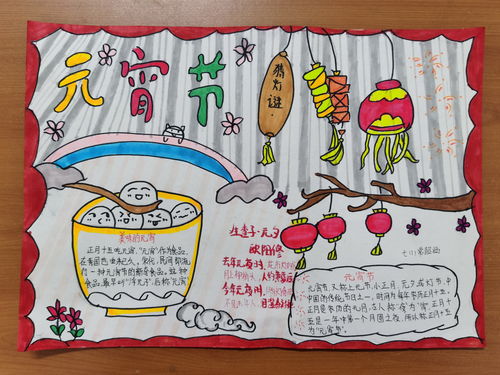 元宵节
猜灯谜
美味的元宵
正月十五吃元宵,"元宵"作为食品,
在我国也由来已久。宋代,民间即流
行一种元宵节的新奇食品。这种
食品,最早叫"浮元子",后称"元宵"
生查子·元夕
欧阳修
去年元夜时,花市灯如昼
月上柳梢头,人约黄昏后
今年元夜时,月与灯依旧
不见去年人,
元宵节
元宵节,又称上元节、小正月、元夕或灯节,中
中国的传统节日之一,时间为每年农历正月十五。
正月是农历的元月,古人称"夜"为"宵",正月十
五是一年中第一个月圆之夜,所以称正月十五
为"元宵节"。